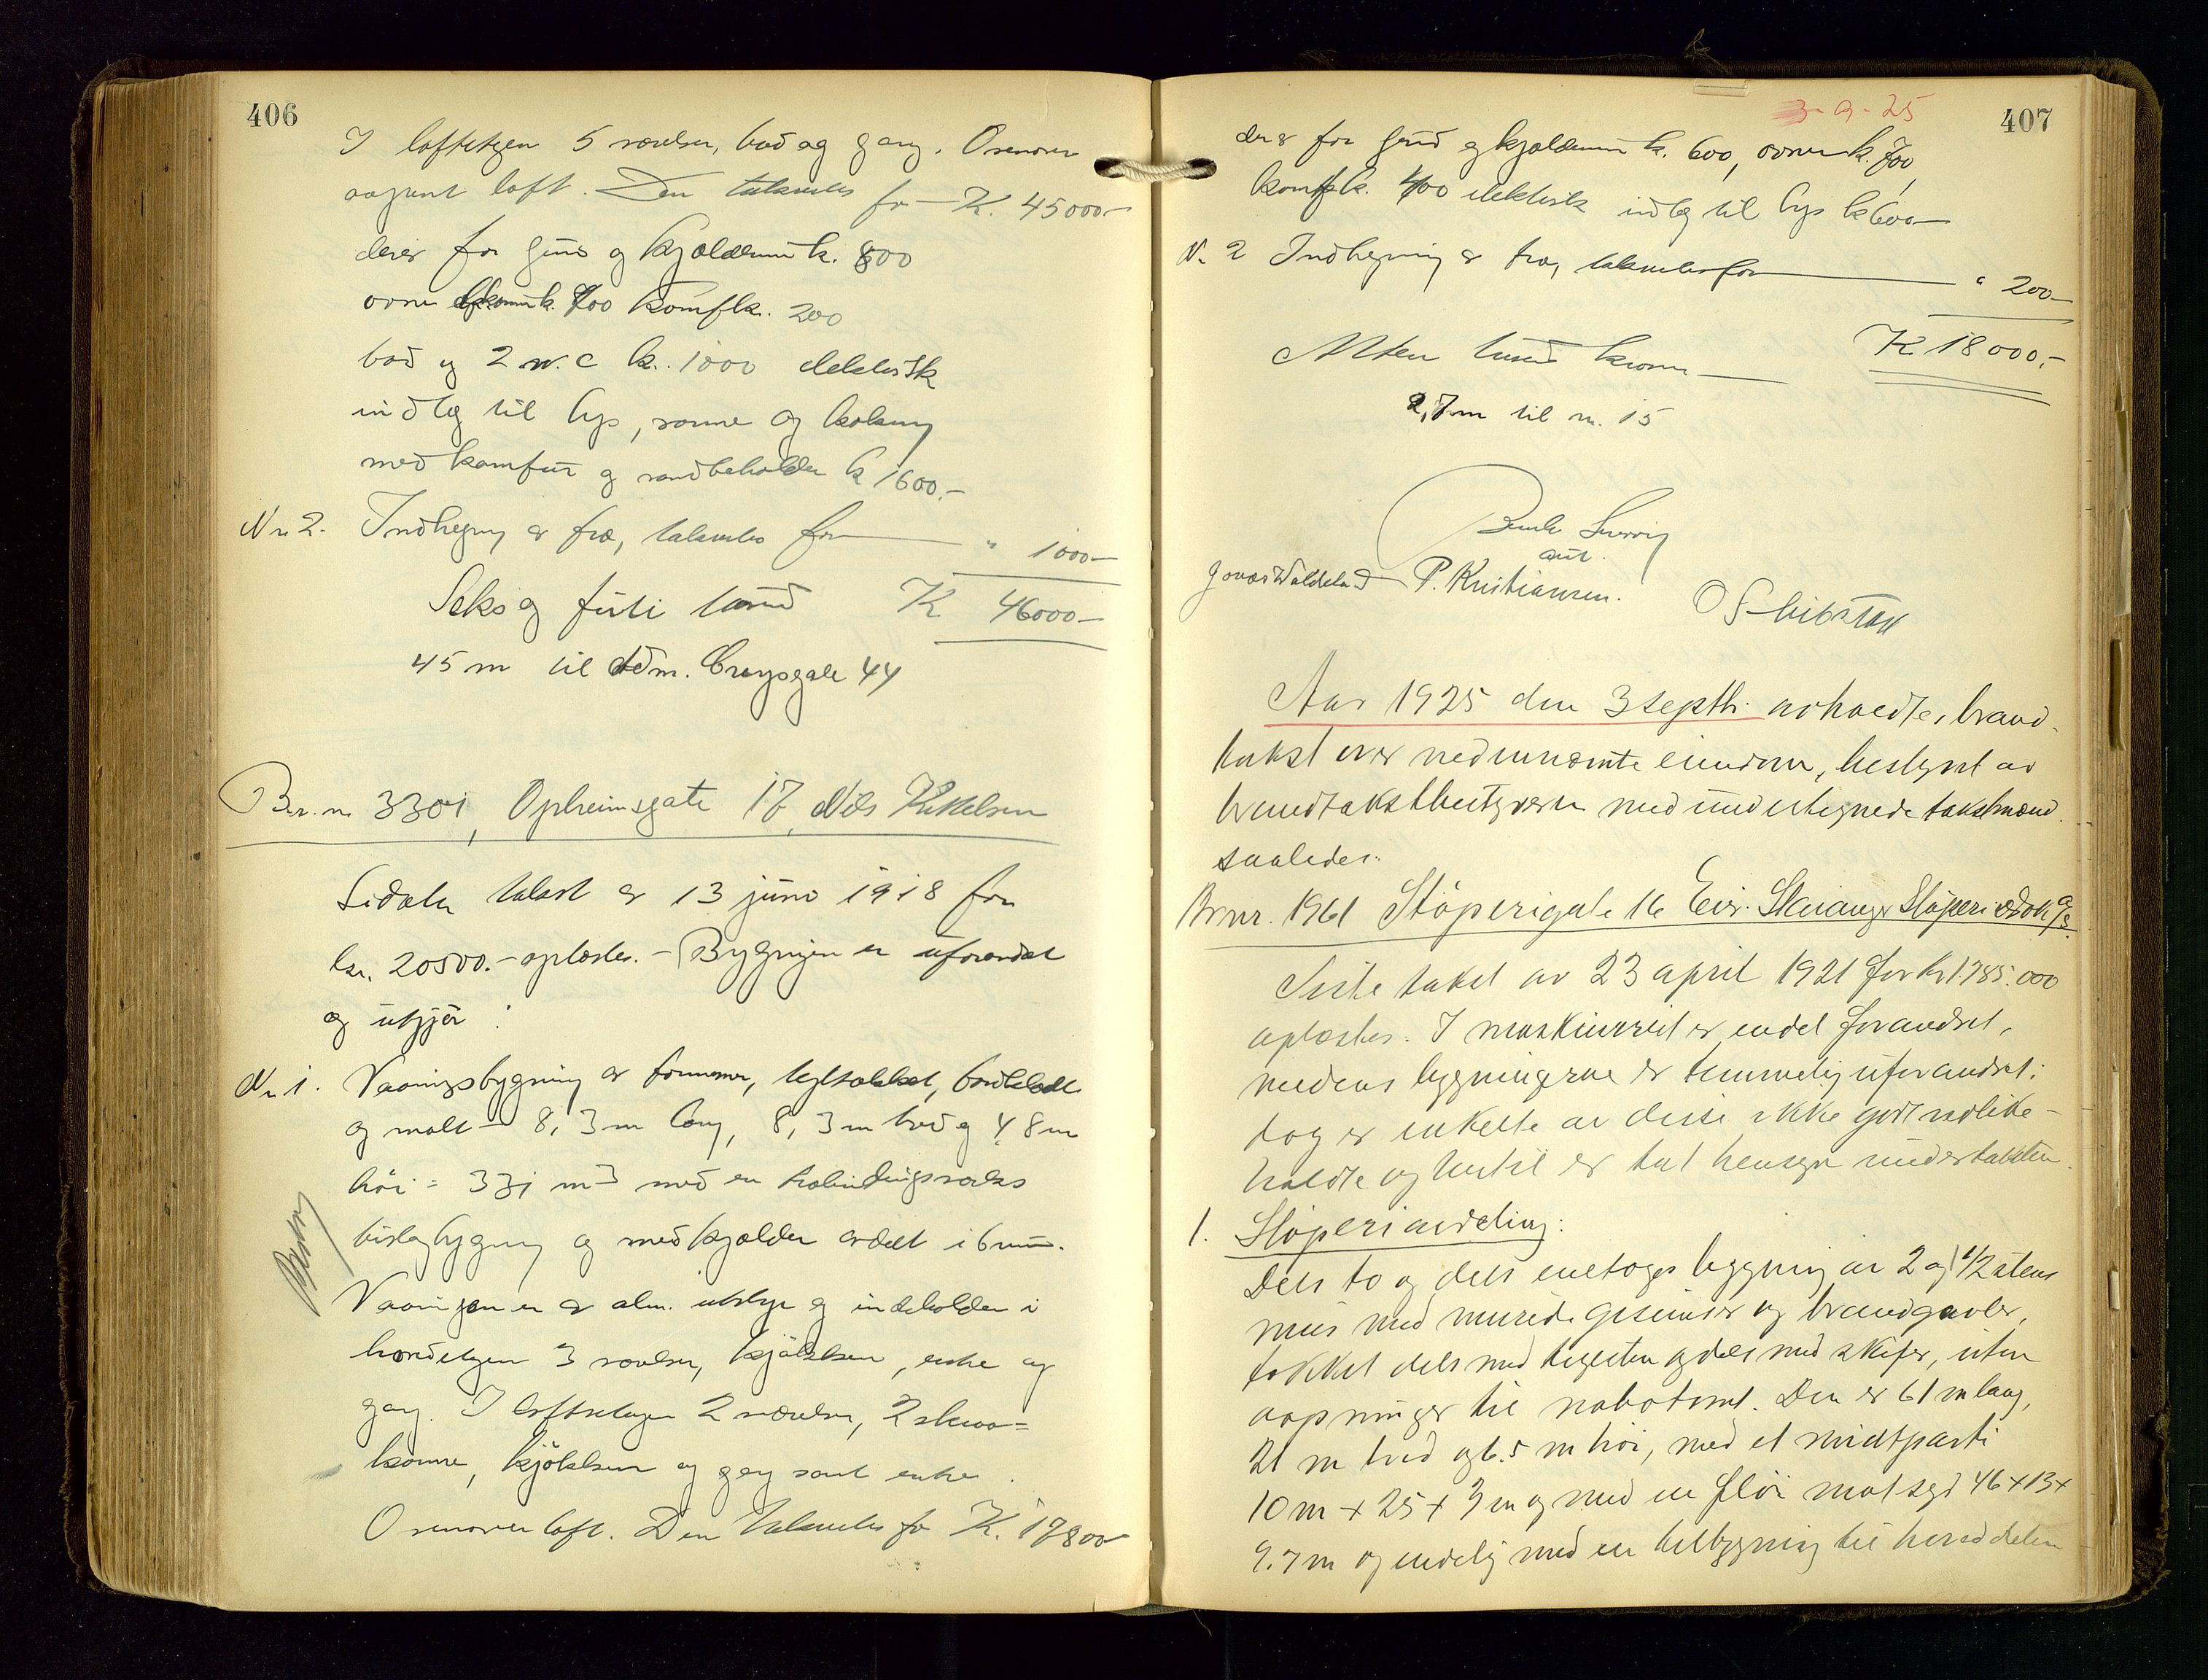 406
I loftetgen 5 værelser, bad og gang. Ovenover
aapent loft. Den takseres for — K. 45000.-
derav for grund og kjælderrum k. 800
ovne k. 700 komf k. 200
bad og 2 w.c k. 1000 elektrisk
indlæg til lys, varme og kokning
med komfur og vandbeholder k 1600.-
Nr 2. Indhegning av træ, takseres for — " 1000-
Seks og førti tusind K 46000-
45 m til Adm. Cruysgate 44
Br.nr. 3301, Opheimsgate 17, Nils Kittelsen
Sidste takst av 13 juni 1918 for
kr. 20500.- oplæstes. - Bygningen er uforandret
og utgjør :
Nr 1. Vaaningsbygning av tømmer, tegltækket, bordklædt
og malt - 8,3 m lang, 8,3 m bred og 4,8 m
høi = 331 m3 med en halvindbygget
bislagbygning og med kjælder avdelt i 6 rum.
Vaaningen er av alm. utstyr og indeholder i
hovedetgen 3 værelser, kjøkken, entre og
gang. I loftsetagen 2 værelser, 2 skraa=
kamre, kjøkken og gang samt entre.
Ovenover loft. Den takseres for K. 17800-
3-9-25
407
derav for grund og kjælderrum k. 600, ovner k. 700,
komf k. 400 elektrisk indlæg til lys k 600-
Nr 2 Indhegning av træ, takseres for — " 200-
Atten tusind kroner — K 18000.-
2,7 m til nr. 15
P. Kristiansen.
Aar 1925 den 3 septb. avholdtes brand-
takst over nedennævnte eiendom, bestyret av
brandtakstbestyreren med undertegnede takstmænd
saaledes:
Br nr. 1961 Støperigate 16 Eier: Stavanger Støperi & Dok A/S.
Siste takst av 23 april 1921 for kr 1.785.000
oplæstes. I maskineriet er endel forandret,
medens bygningerne er temmelig uforandret;
dog er enkelte av disse ikke godt vedlike-
holdte og hertil er tat hensyn under taksten.
1. Støperiavdeling:
Dels to og dels enetages bygning av 2 og 1 1/2 stens
mur med murede gesimser og brandgavler,
tækket dels med teglsten og dels med skifer, uten
aapninger til nabotomt. Den er 61 m lang,
21 m bred og 6.5 m høi, med et midtparti
10 m x 25 x 3 m og med en fløi mot syd 46 x 13 x
9.7 m og endelig med en tilbygning til hoveddelen